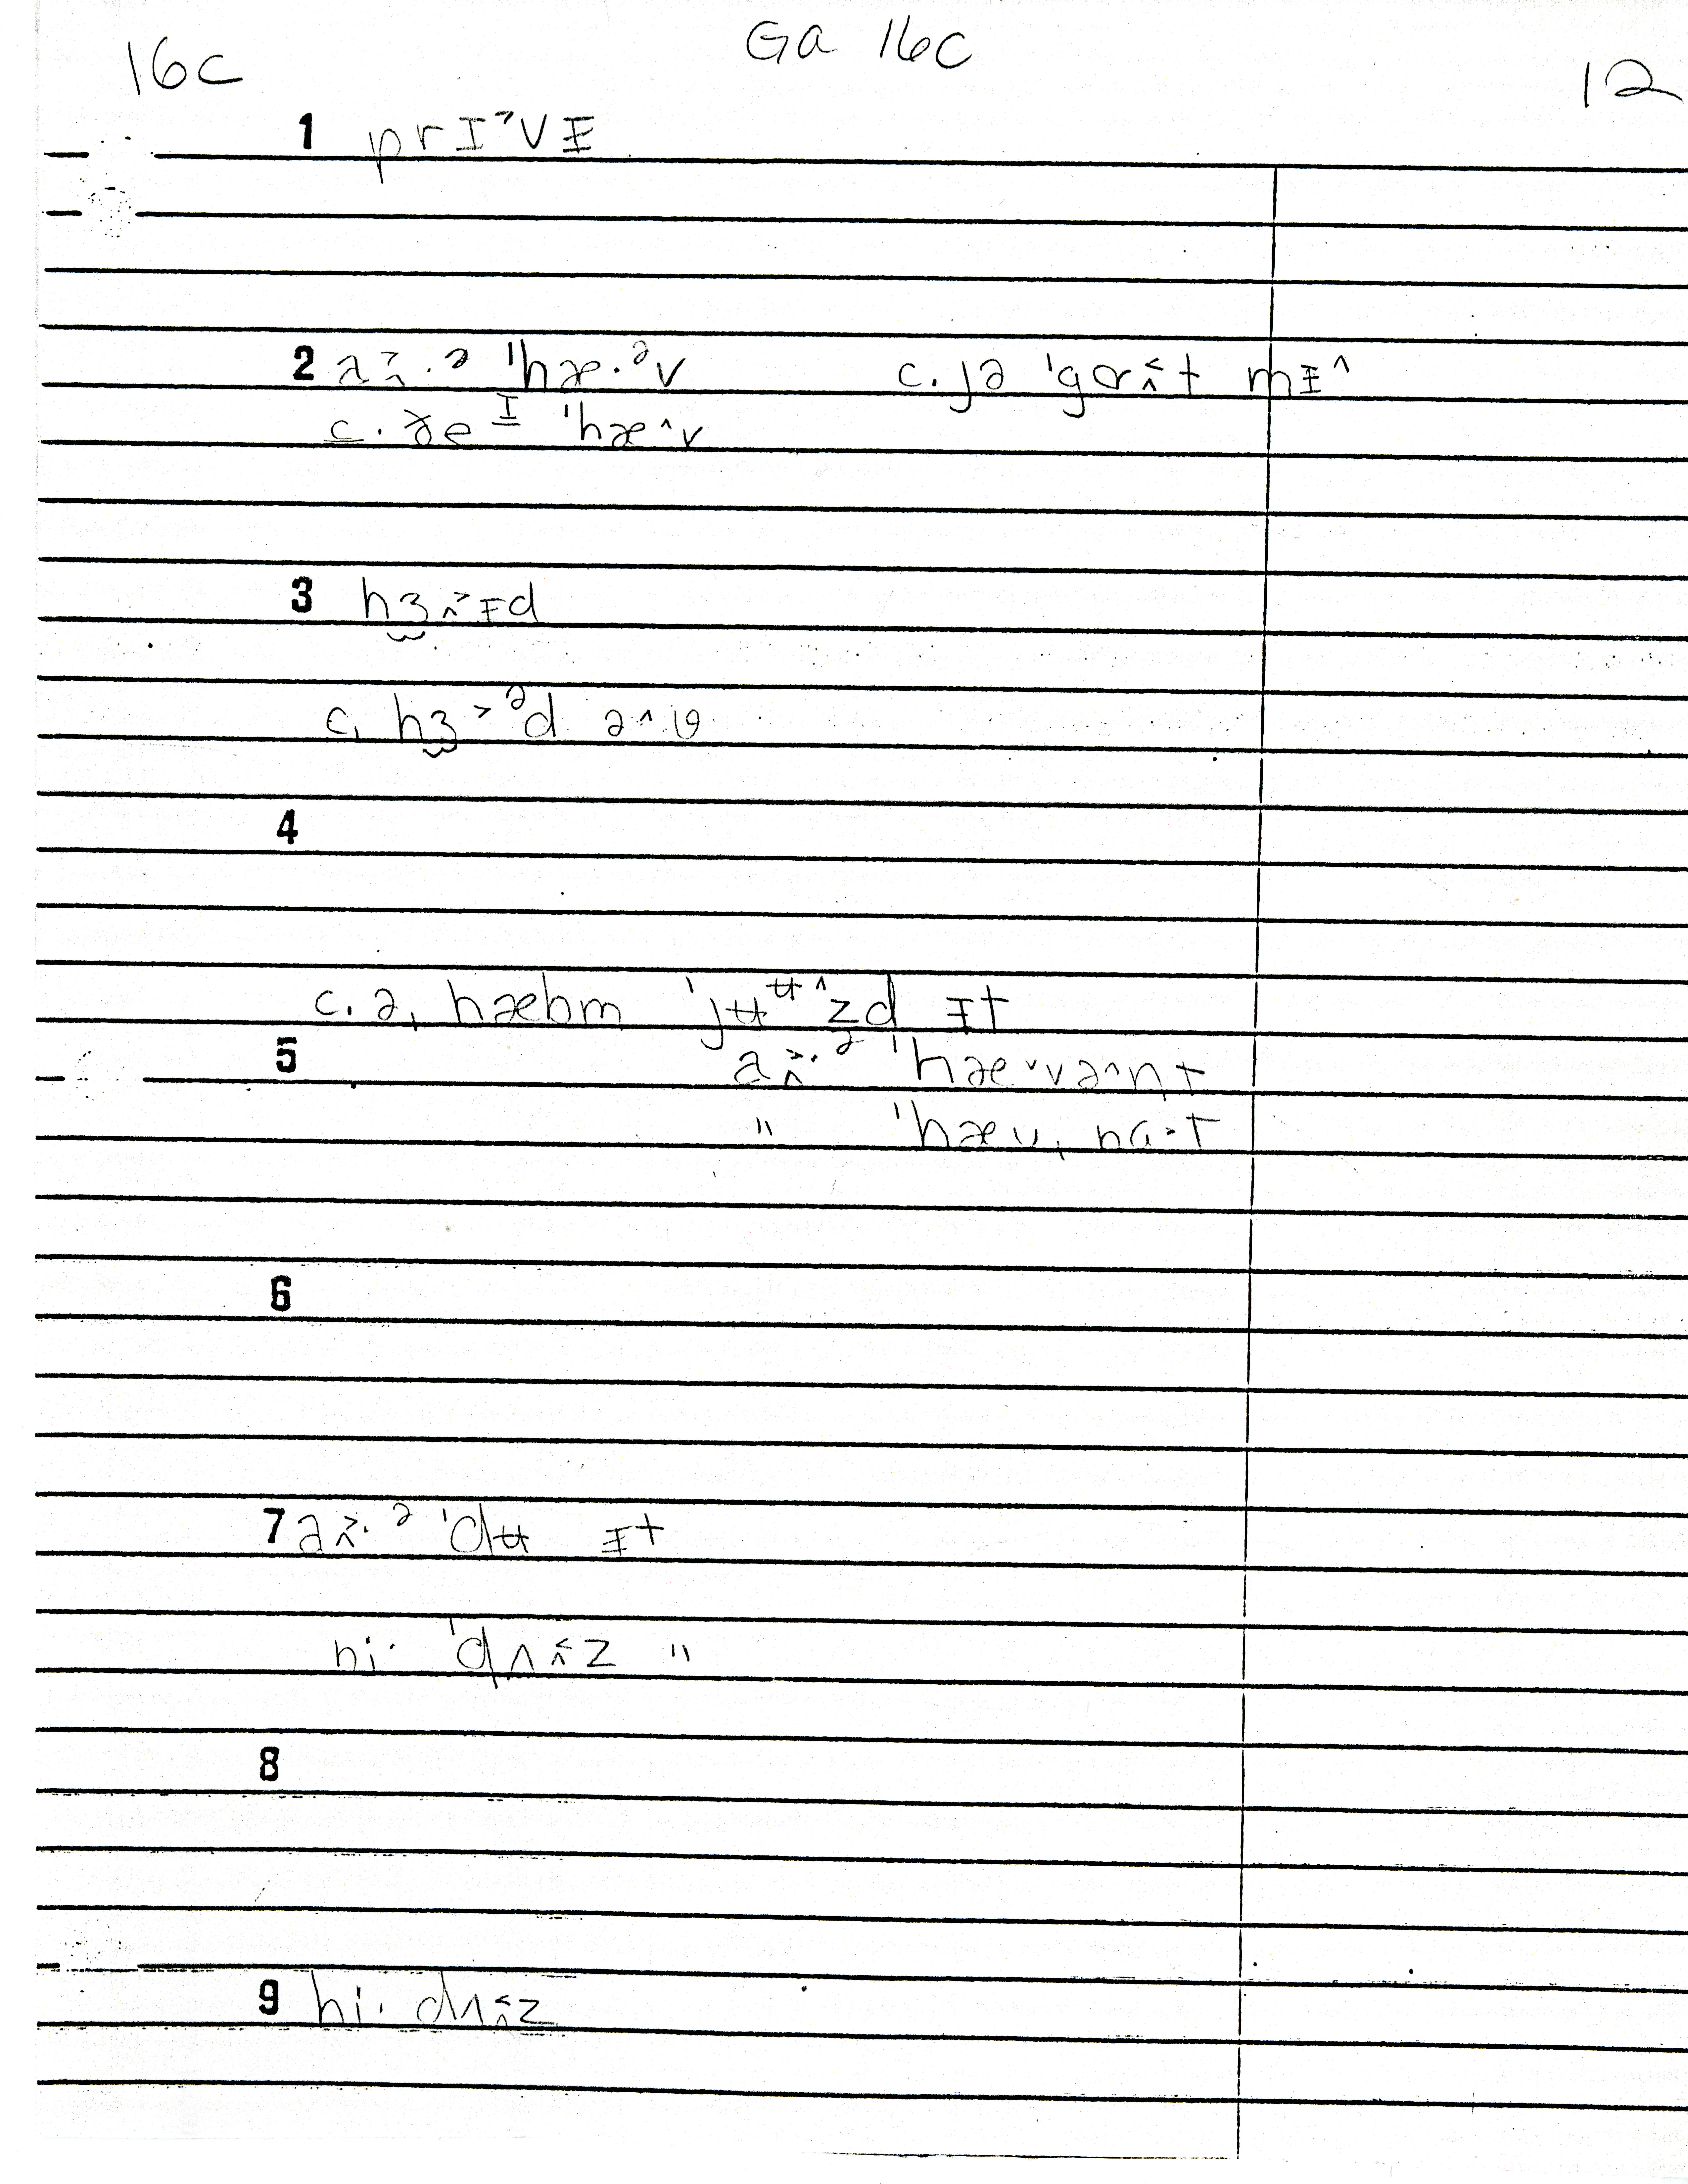 Ga 16c
16c 12
1 prɪ˃vᵻ
2 a˃̭.ᵊ ˈhæ.ᵊv c. jə ˈgɑ˂̭t mᵻ^
c. ðeᴵ ˈhæ^v
3 hɜ̯˃̭ᵻd
c. hɜ̯˃ᵊd ə^v
4
c. ə, hæbm ˈjʉᶶ^zd ᵻt
5 a˃̭.ᵊ ˈhæˇvə^n̩t
" ˈhæv, nɑ·t
6
7 a˃̭.ᵊ ˈdʉ ᵻt
hi· ˈdʌ˂̭z "
8
9 hi· dʌ˂̭z